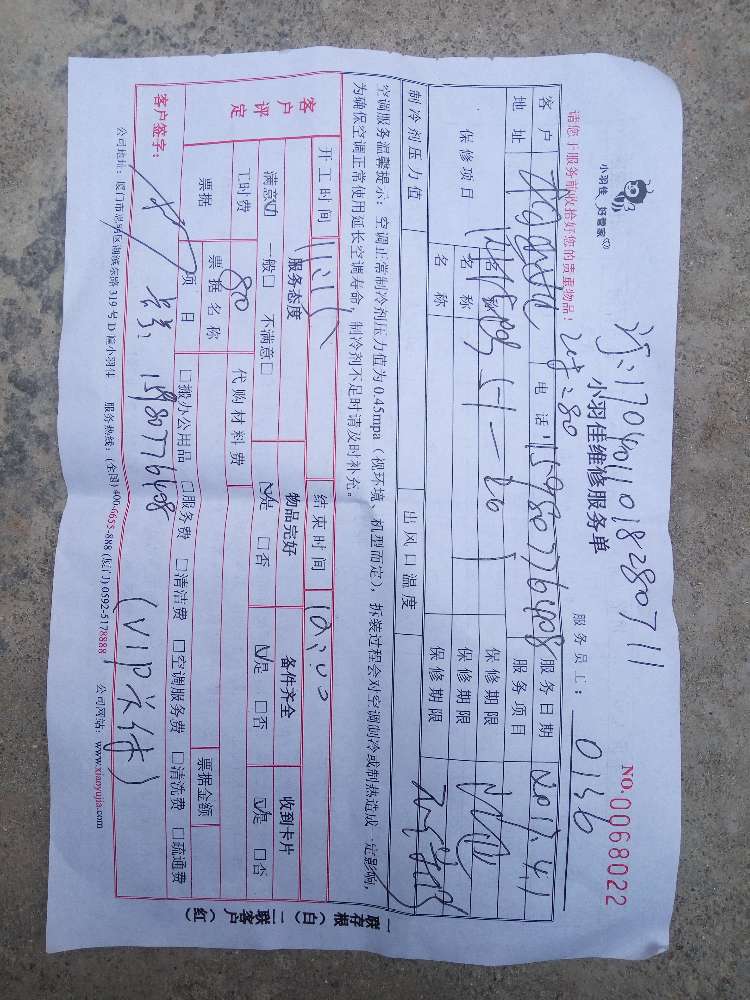 小羽佳 好管家
17040110182807 11
小羽佳维修服务单
NO.0068022
请您于服务前收拾好您的贵重物品!
280
服务员工: 0136
客户
电话 15980776408
服务日期 2017.4.1
地址
服务项目
保修项目
名称
保修期限
名称
保修期限
名称
保修期限
制冷剂压力值
出风口温度
空调服务温馨提示:空调正常制冷剂压力值为0.45mpa(视环境、机型而定),拆装过程会对空调制冷或制热造成一定影响,
为确保空调正常使用延长空调寿命,制冷剂不足时请及时补充。
开工时间 11:15
结束时间 12:00
客户评定
服务态度
物品完好
备件齐全
收到卡片
满意☑ 一般□ 不满意□
☑是 □否
☑是 □否
☑是 □否
工时费 80
代购材料费
票据
票据名称
票据金额
项目
□搬办公用品 □服务费 □清洁费 □空调服务费 □清洗费 □疏通费
客户签字:
15980776408
(VIP
公司地址:厦门市思明区湖滨东路319号D幢小羽佳
服务热线:(全国)400-6655-888 (厦门)0592-5178888
公司网站:www.xiaoyujia.com
一联存根(白) 二联客户(红)